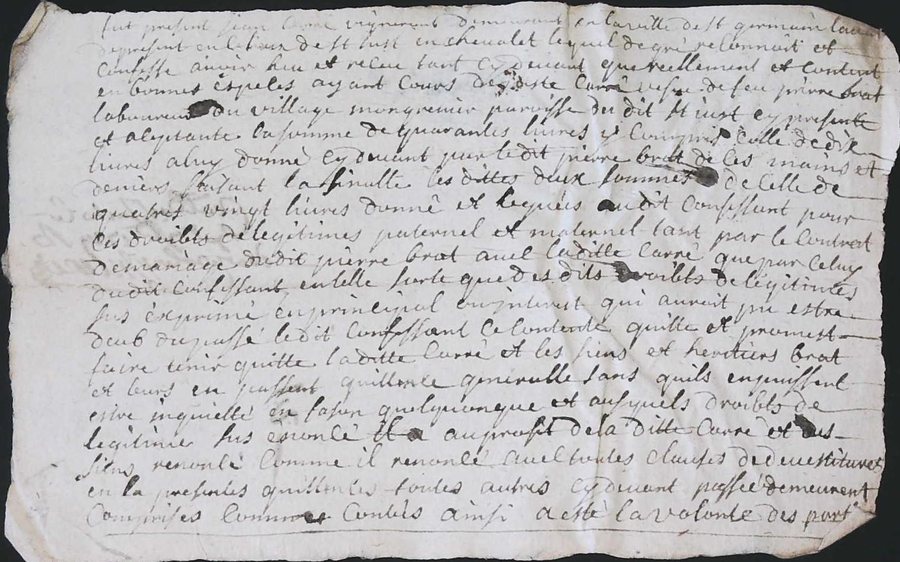 fut present jean Carré vigneront demeurant en la ville de st germain laual
depresent en ce lieux de st just en chevalet lequel de gré reconnoit et
Confesse avoir heu et receu tant cy devant que reellement et contant
en bonnes especes ayant cours de ditte Carré vefve de feu pierre brat
laboureur du village mongrenier paroisse du dit st just cy presente
et aceptante la somme de quarantes livres y compris celle de dix
livres a luy donné cy devant par le dit pierre brat de ces mains et
deniers faisant la finalle les dittes deux sommes de celle de
quatres vingt livres donné et leguées au dit Confessant pour
ces droibts de legitimes paternel et maternel tant par le Contrat
de mariage du dit pierre brat avec la ditte Carré que par celuy
du dit Confessant, en telle sorte que des dits droibts de legitimes
sus exprimé en principal ou interest qui auroit pu estre
deub du passé le dit Confessant ce contente quitte et promest
faire tenir quitte la ditte Carré et les siens et heritiers brat
et leurs en passent quittance generalle sans quils en puissent
estre inquietté en fason quelquonque et ausquels droibts de
legitimes sus enoncé il a au profit de la ditte Carré et des
siens renoncé comme il renonce avec toutes clauses de devestitures
en la presentes quittances toutes autres cy devant passée demeurent
Comprises Commes Contées ainsi a esté la volonte des part